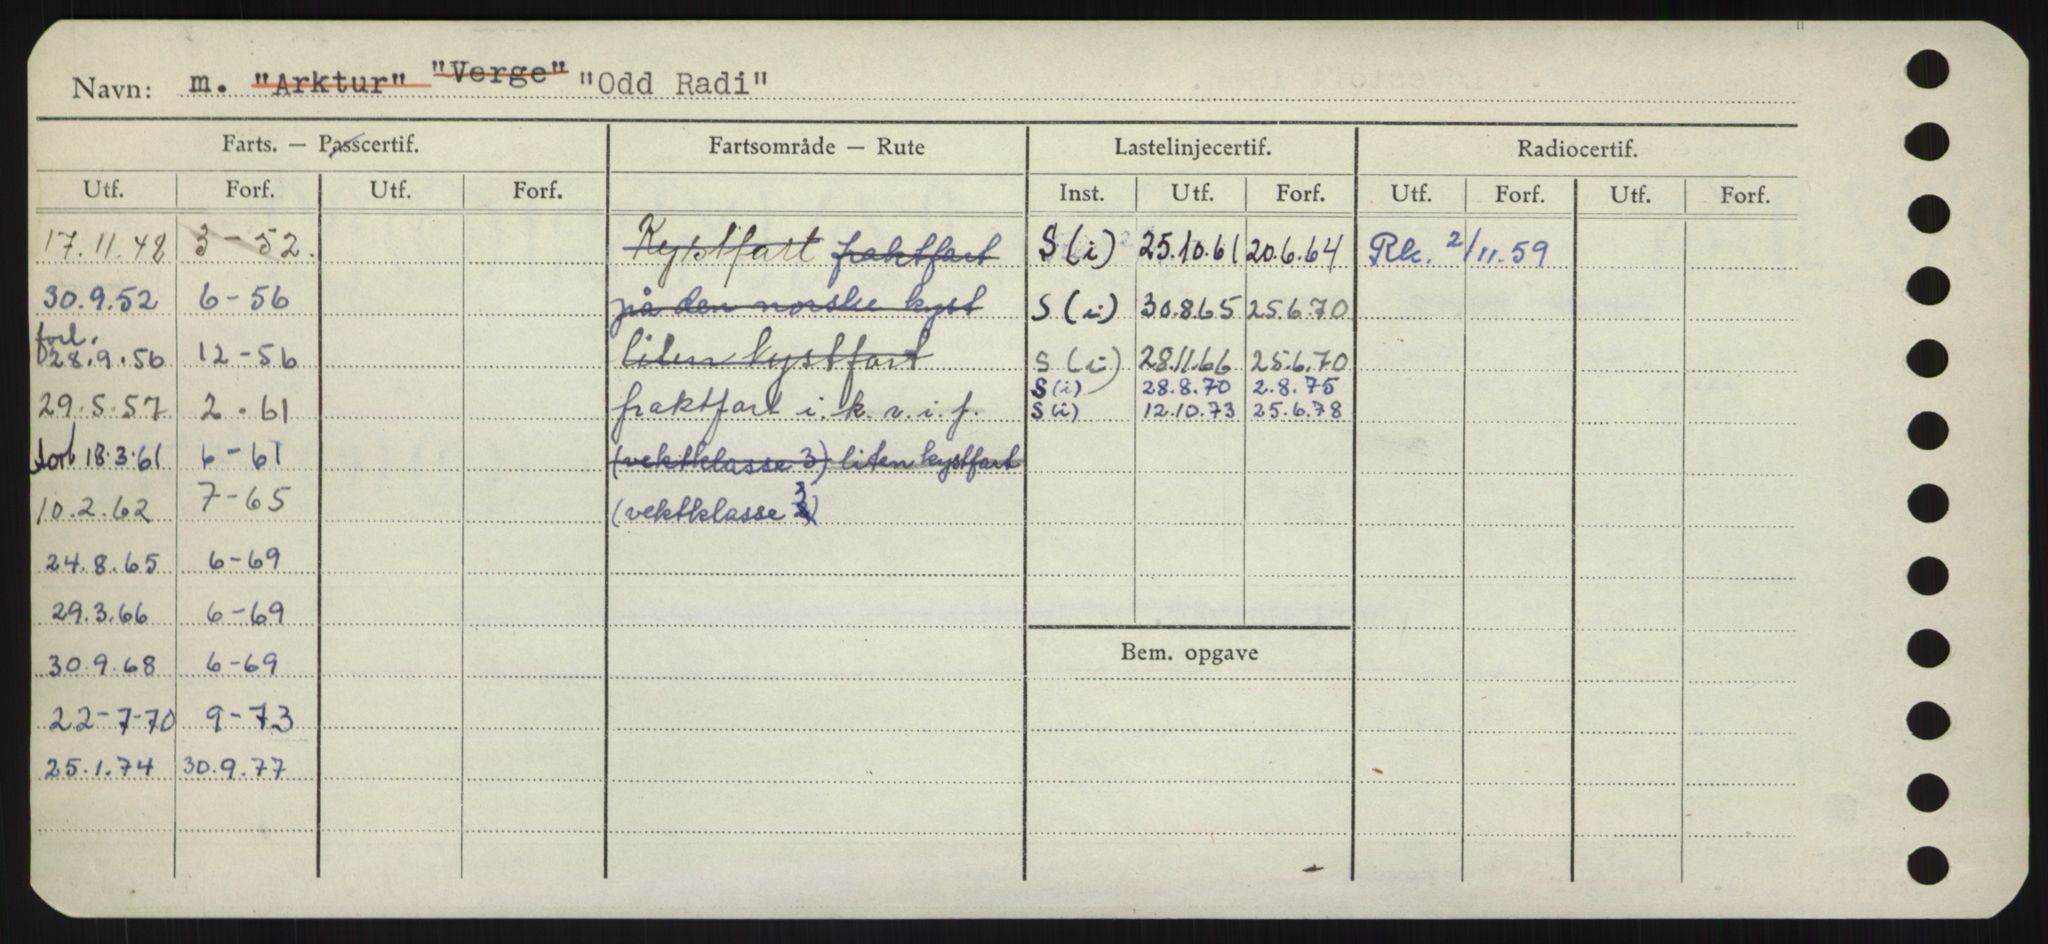 Navn: m. "Arktur" "Verge" "Odd Radi"
Farts. — Passcertif. Fartsområde — Rute Lastelinjecertif. Radiocertif.
Utf. Forf. Utf. Forf. Inst. Utf. Forf. Utf. Forf. Utf. Forf.
17.11.48 3-52. Kystfart fraktfart S (i) 25.10.61 20.6.64 Rk. 2/11.59
30.9.52 6-56 på den norske kyst S (i) 30.8.65 25.6.70
forl. 28.9.56 12-56 liten kystfart S (i) 28.11.66 25.6.70
S (i) 28.8.70 2.8.75
29.5.57 2.61 fraktfart i. k. v. i. f. S (i) 12.10.73 25.6.78
forl 18.3.61 6-61 (vektklasse 3) liten kystfart
10.2.62 7-65 (vektklasse 3)
24.8.65 6-69
29.3.66 6-69
30.9.68 6-69 Bem. opgave
22-7-70 9-73
25.1.74 30.9.77